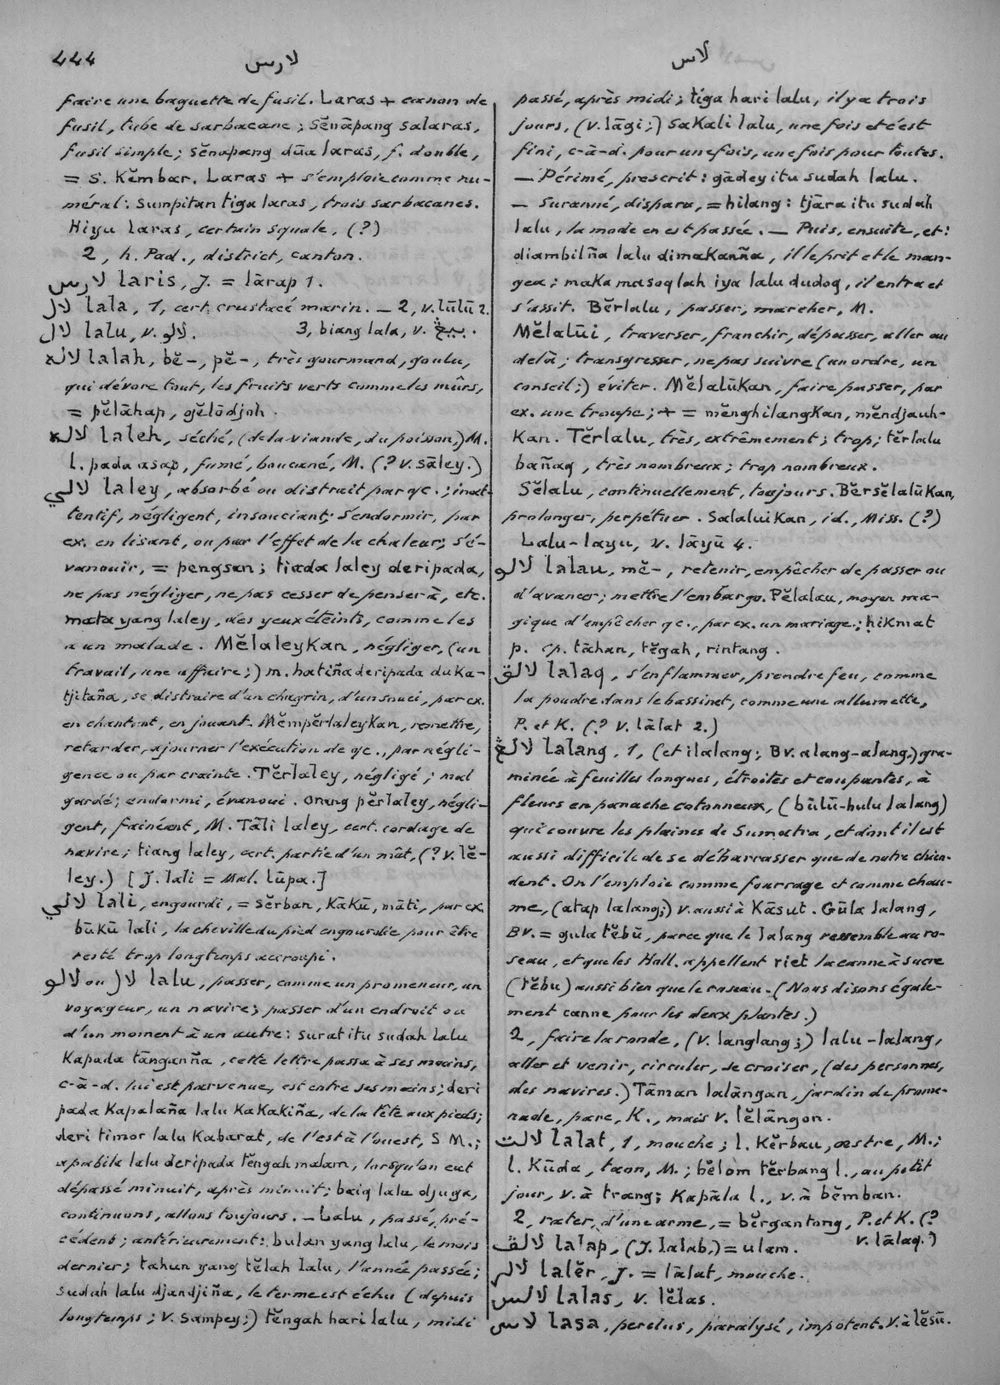 444
لارس
لاس
faire une baguette de fusil. Laras + canon de
fusil, tube de sarbacane ; sĕnāpang salaras,
fusil simple ; sĕnapang dūa laras, f. double,
= s. kĕmbar. Laras + s'emploie comme nu-
méral : sumpitan tiga laras, trois sarbacanes.
Hiyu laras, certain squale, (?)
2, h. Pad., district, canton.
لارس laris, J. = lārap 1.
لال lala, 1, cert. crustacé marin. — 2, v. lūlū 2.
لال lalu, v. لالو. 3, biang lala, v. بيڠ.
لاله lalah, bĕ-, pĕ-, très gourmand, goulu,
qui dévore tout, les fruits verts comme les mûrs,
= pĕlāhap, gĕlōdjoh.
لاله laleh, séché, (de la viande, du poisson,) M.
l. pada asap, fumé, boucané, M. (? v. sāley.)
لالي laley, absorbé ou distrait par qc. ; inat-
tentif, négligent, insouciant; s'endormir, par
ex. en lisant, ou par l'effet de la chaleur; s'é-
vanouir, = pengsan ; tiada laley deripada,
ne pas négliger, ne pas cesser de penser à, etc.
mata yang laley, des yeux éteints, comme les
a un malade. Mĕlaleykan, négliger, (un
travail, une affaire ;) m. hatiña deripada duka-
tjitaña, se distraire d'un chagrin, d'un souci, par ex.
en chantant, en jouant. Mĕmpĕrlaleykan, remettre,
retarder, ajourner l'exécution de qc., par négli-
gence ou par crainte. Tĕrlaley, négligé ; mal
gardé ; endormi, évanoui. orang pĕrlaley, négli-
gent, fainéant, M. Tāli laley, cert. cordage de
navire ; tiang laley, cert. partie d'un mât, (? v. lĕ-
ley.) [J. lali = Mal. lūpa.]
لالي lali, engourdi, = sĕrban, kākū, māti, par ex.
būkū lali, la cheville du pied engourdie pour être
resté trop longtemps accroupi.
لالو ou لال lalu, passer, comme un promeneur, un
voyageur, un navire ; passer d'un endroit ou
d'un moment à un autre : surat itu sudah lalu
kapada tānganña, cette lettre passa à ses mains,
c-à-d. lui est parvenue, est entre ses mains ; deri
pada kapalaña lalu kakakiña, de la tête aux pieds ;
deri timor lalu kabarat, de l'est à l'ouest, S M. ;
apabila lalu deripada tĕngah malam, lorsqu'on eut
dépassé minuit, après minuit ; baiq lalu djuga,
continuons, allons toujours. — Lalu, passé, pré-
cédent ; antérieurement : bulan yang lalu, le mois
dernier ; tahun yang tĕlah lalu, l'année passée ;
sudah lalu djandjiña, le terme est échu (depuis
longtemps ; v. sampey;) tĕngah hari lalu, midi
passé, après midi ; tiga hari lalu, il y a trois
jours, (v. lāgi ;) sakali lalu, une fois et c'est
fini, c-à-d. pour une fois, une fois pour toutes.
— Périmé, prescrit : gādey itu sudah lalu.
— Suranné, disparu, = hilang : tjāra itu sudah
lalu, la mode en est passée. — Puis, ensuite, et :
diambilña lalu dimakanña, il le prit et le man-
gea ; maka masoqlah iya lalu dudoq, il entra et
s'assit. Bĕrlalu, passer, marcher, M.
Mĕlalūi, traverser, franchir, dépasser, aller au
delà ; transgresser, ne pas suivre (un ordre, un
conseil ;) éviter. Mĕlalūkan, faire passer, par
ex. une troupe ; + = mĕnghilangkan, mĕndjauh-
kan. Tĕrlalu, très, extrêmement ; trop ; tĕrlalu
bañaq, très nombreux ; trop nombreux.
Sĕlalu, continuellement, toujours. Bĕrsĕlalūkan,
prolonger, perpétuer. Salaluikan, id., Miss. (?)
Lalu-layu, v. lāyū 4.
لالو lalau, mĕ-, retenir, empêcher de passer ou
d'avancer ; mettre l'embargo. Pĕlalau, moyen ma-
gique d'empêcher qc., par ex. un mariage ; hikmat
p. cp. tāhan, tĕgah, rintang.
لالق lalaq, s'enflammer, prendre feu, comme
la poudre dans le bassinet, comme une allumette,
P. et K. (? v. lālat 2.)
لالڠ lalang, 1, (et ilalang ; Bv. alang-alang,) gra-
minée à feuilles longues, étroites et coupantes, à
fleurs en panache cotonneux, (būlū-bulu lalang)
qui couvre les plaines de Sumatra, et dont il est
aussi difficile de se débarrasser que de notre chien-
dent. On l'emploie comme fourrage et comme chau-
me, (atap lalang;) v. aussi à kāsut. Gūla lalang,
Bv. = gula tĕbū, parce que le lalang ressemble au ro-
seau, et que les Holl. appellent riet la canne à sucre
(tĕbu) aussi bien que le roseau. (Nous disons égale-
ment canne pour les deux plantes.)
2, faire la ronde, (v. langlang ;) lalu-lalang,
aller et venir, circuler, se croiser, (des personnes,
des navires.) Tāman lalāngan, jardin de prome-
nade, parc, K., mais v. lĕlāngon.
لالت lalat, 1, mouche ; l. kĕrbau, œstre, M. ;
l. kūda, taon, M. ; bĕlom tĕrbang l., au petit
jour, v. à trang ; kapāla l., v. à bĕmban.
2, rater, d'une arme, = bĕrgantong, P. et K. (?
v. lālaq.)
لالڤ lalap, (J. lalab,) = ulam.
لالر lalĕr, J. = lālat, mouche.
لالس lalas, v. lĕlas.
لاس lasa, perclus, paralysé, impotent. v. à lĕsū.